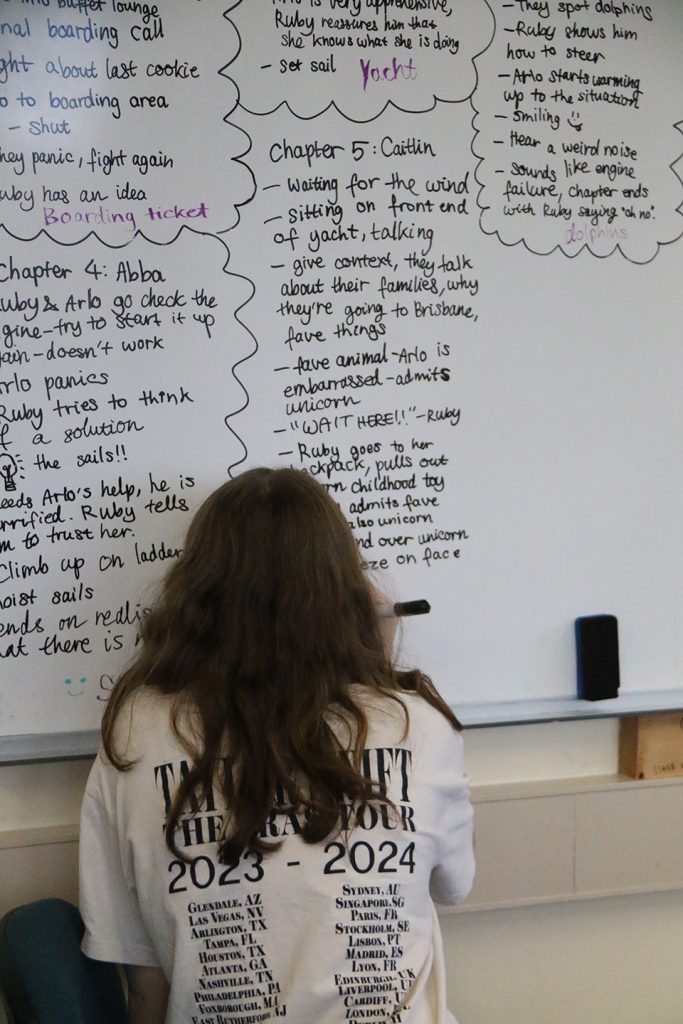 buffet lounge
boarding call
about last cookie
to boarding area
- shut
panic, fight again
has an idea
Boarding ticket
is very apprehensive,
Ruby reassures him that
she knows what she is doing
- set sail Yacht
- They spot dolphins
- Ruby shows him
how to steer
- Arlo starts warming
up to the situation
- smiling
- Hear a weird noise
- Sounds like engine
failure, chapter ends
with Ruby saying "oh no".
dolphins
Chapter 4: Abba
& Arlo go check the
- try to start it up
- doesn't work
panics
Ruby tries to think
a solution
the sails!!
Arlo's help, he is
Ruby tells
to trust her.
Climb up on ladder
sails
on
there is
Chapter 5: Caitlin
- waiting for the wind
- sitting on front end
of yacht, talking
- give context, they talk
about their families, why
they're going to Brisbane,
fave things
- fave animal - Arlo is
embarrassed - admits
unicorn
- "WAIT HERE!!" - Ruby
- Ruby goes to her
pulls out
childhood toy
admits fave
also unicorn
over unicorn
on face
THE ERAS TOUR
2023 - 2024
GLENDALE, AZ
LAS VEGAS, NV
ARLINGTON, TX
TAMPA, FL
HOUSTON, TX
ATLANTA, GA
NASHVILLE, TN
PHILADELPHIA, PA
FOXBOROUGH, MA
EAST RUTHERFORD, NJ
SYDNEY, AU
SINGAPORE, SG
PARIS, FR
STOCKHOLM, SE
LISBON, PT
MADRID, ES
LYON, FR
EDINBURGH, UK
LIVERPOOL,
CARDIFF,
LONDON,